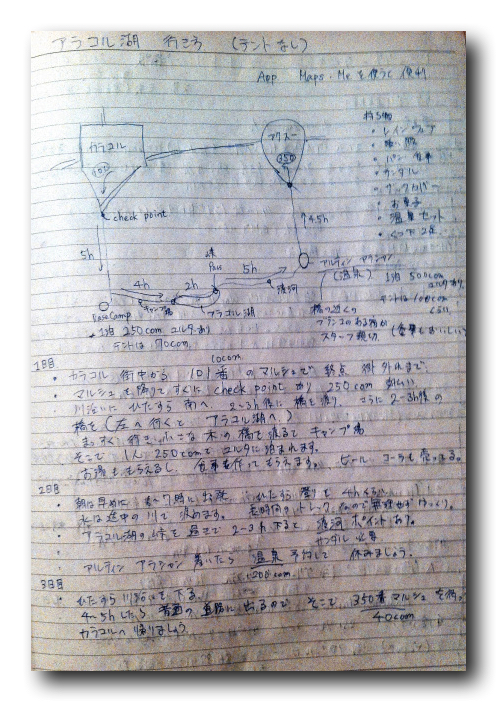 アラコル湖 行き方 (テントなし)
App Maps.Me を使うと便利
持ち物
・レインウェア
・パン 食事
・サンダル
・ザックカバー
・お菓子
・温泉セット
・くつ下2足
カラコル
アクスー
350
check point
5h
4h
2h
5h
4.5h
Pass
Base Camp
キャンプ場
アラコル湖
渡河
アルティン アラシャン
(温泉) 1泊 500com
ユルタあり
テントは 100com
くらい
橋の近くの
スタッフ親切
(食事もおいしい)
1泊 250com ユルタあり
テントは 70com
10com
1日目
・カラコル 街中から 101番のマルシュで 終点 街外れまで
・マルシュを降りてすぐに check point あり 250com 払い
川沿いに ひたすら 南へ 2~3h後に 橋を渡り、さらに 2~3h後の
橋を (左へ行くと アラコル湖へ)
まっすぐ行き、小さな木の橋を渡ると キャンプ場
そこで 1人 250comで ユルタに泊まれます。
お湯ももらえるし、食事も作ってもらえます。ビール コーラも売ってる。
2日目
・朝は早めに 6~7時に出発 ひたすら登りを 4hくらい
水は途中の川で汲めます。長時間のトレックなので無理せずゆっくり。
・アラコル湖の峠を過ぎて 2~3h 下ると 渡河ポイントあり。
サンダル必要
・アルティン アラシャン 着いたら 温泉 予約して 休みましょう。
200com
3日目
・ひたすら川沿いを下る。
4~5hしたら 普通の道路に出るので そこで 350番マルシュを待つ
40com
カラコルへ帰りましょう